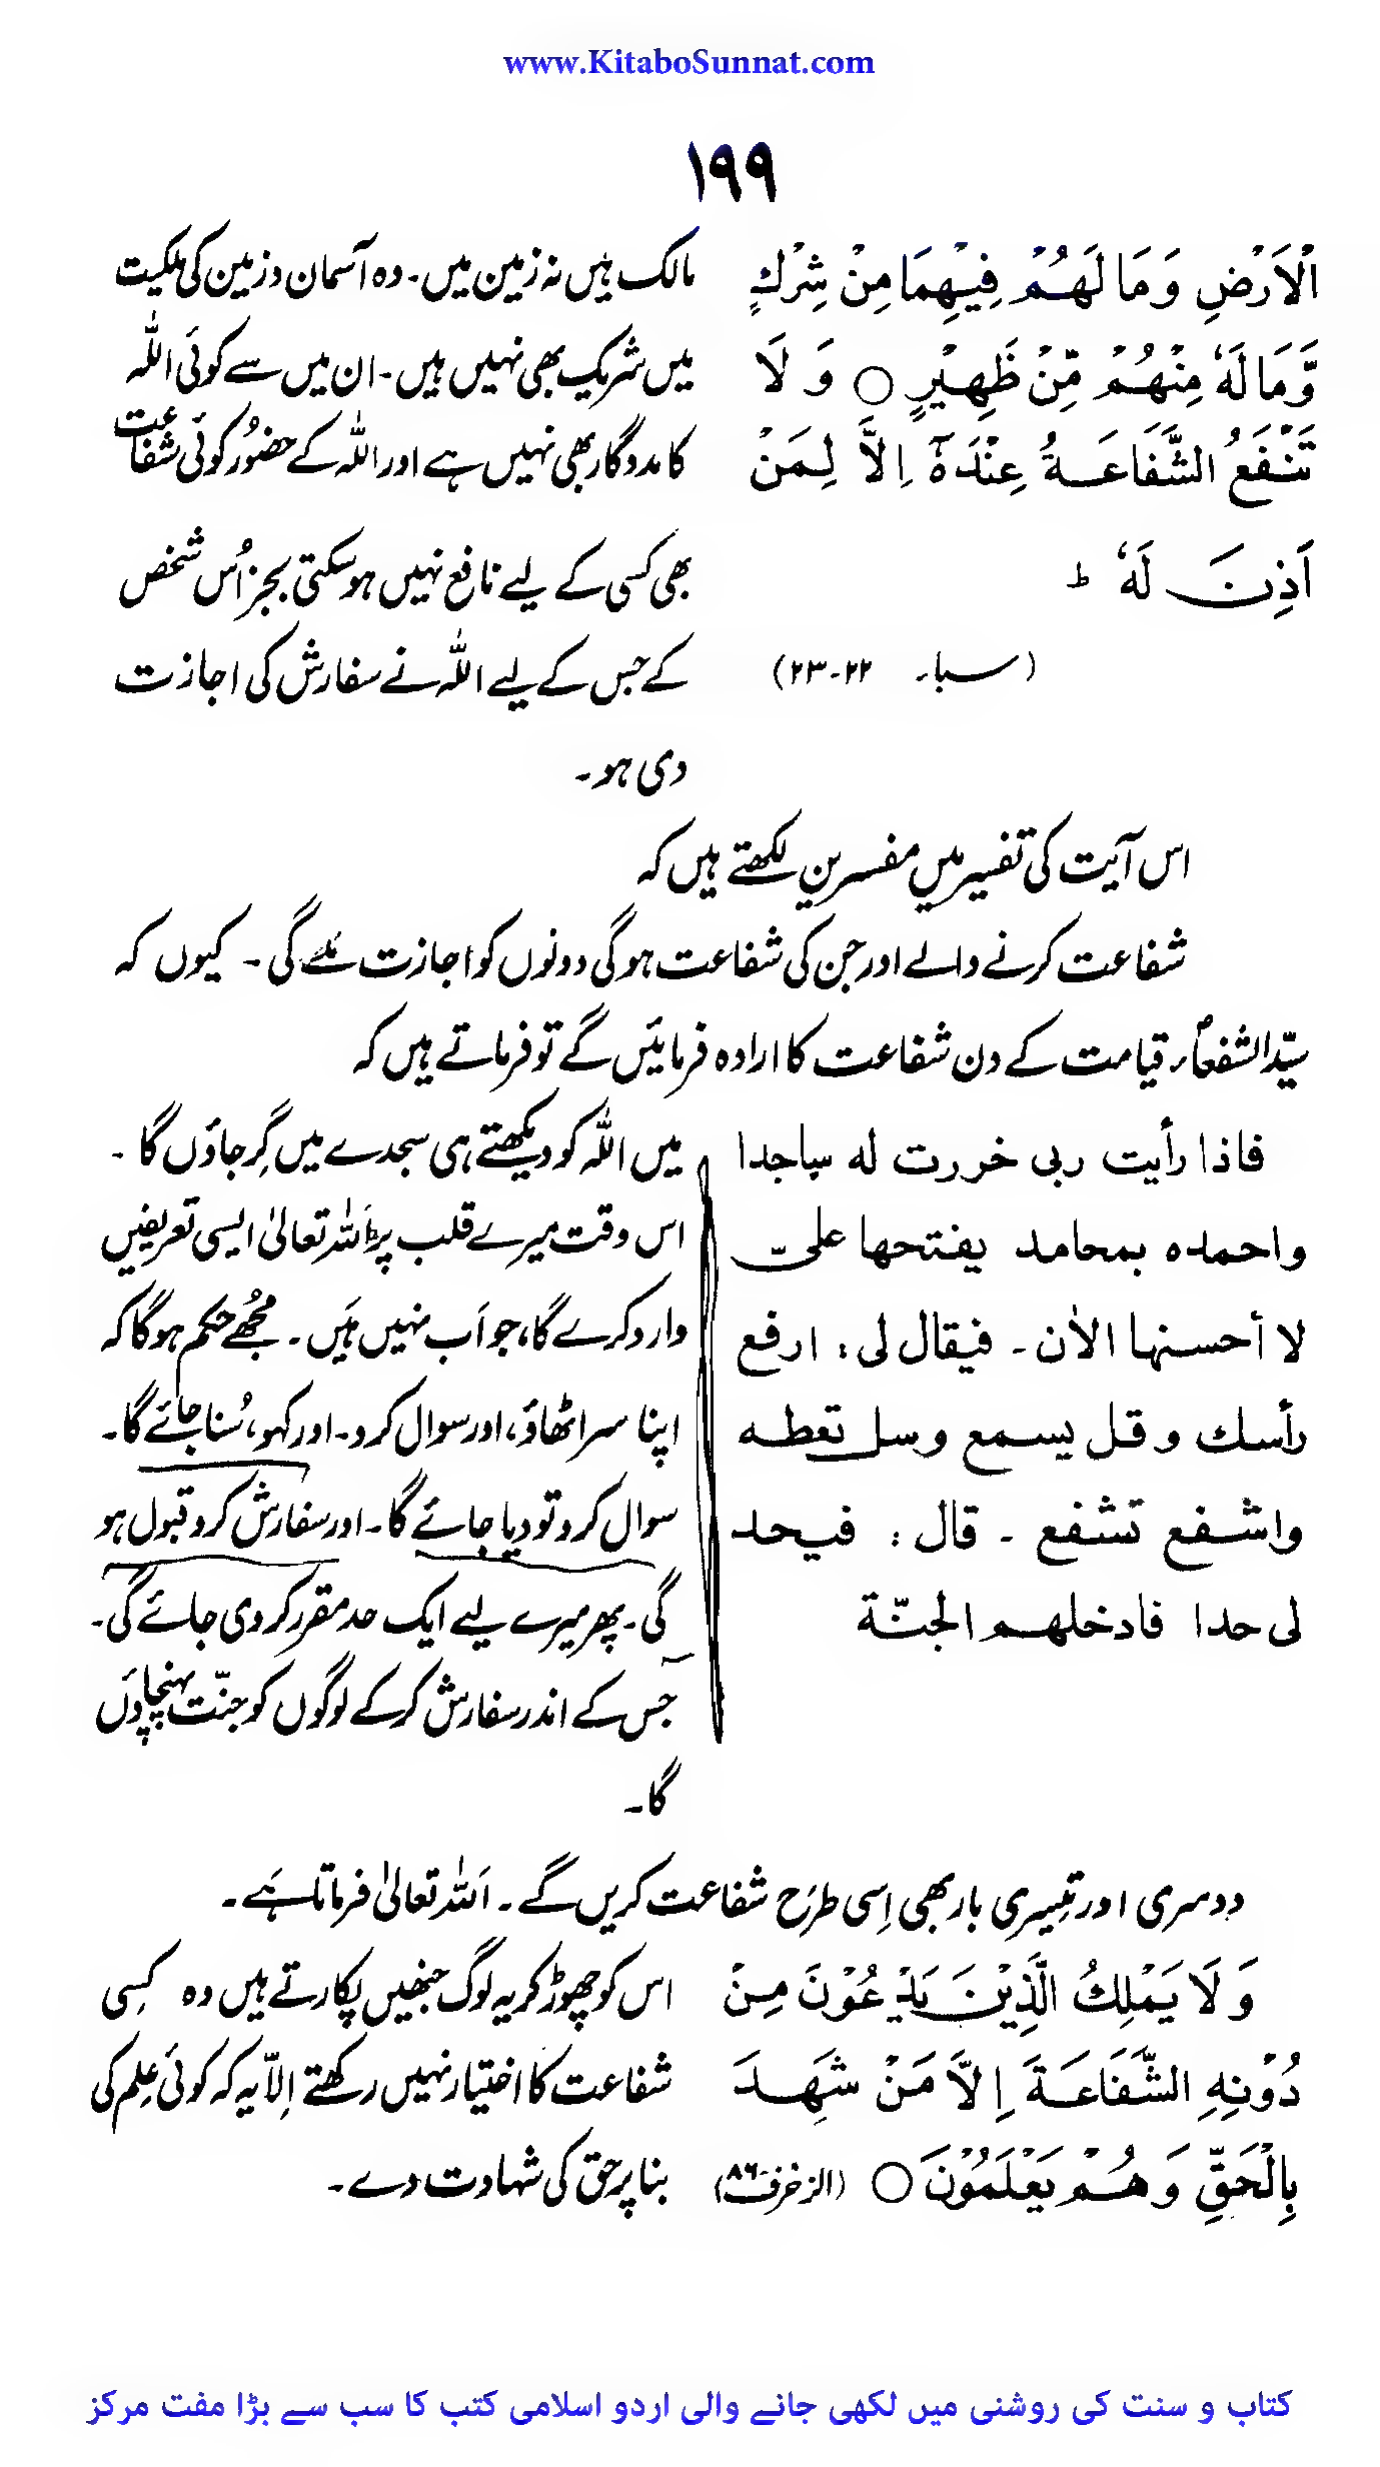 www.KitaboSunnat.com
۱۹۹
الْاَرْضِ وَمَا لَهُمْ فِيْهِمَا مِنْ شِرْكٍ
وَّمَا لَهٗ مِنْهُمْ مِّنْ ظَهِيْرٍ ○ وَ لَا
تَنْفَعُ الشَّفَاعَةُ عِنْدَهٗۤ اِلَّا لِمَنْ
اَذِنَ لَهٗ ط
(سبا۔ ۲۲-۲۳)
مالک ہیں نہ زمین میں۔ وہ آسمان و زمین کی ملکیت
میں شریک بھی نہیں ہیں۔ ان میں سے کوئی اللہ
کا مددگار بھی نہیں ہے اور اللہ کے حضُور کوئی شفاعت
بھی کسی کے لیے نافع نہیں ہو سکتی بجز اُس شخص
کے جس کے لیے اللہ نے سفارش کی اجازت
دی ہو۔
اس آیت کی تفسیر میں مفسرین لکھتے ہیں کہ
شفاعت کرنے والے اور جن کی شفاعت ہوگی دونوں کو اجازت ملے گی۔ کیوں کہ
سیّد الشفعاؑء قیامت کے دن شفاعت کا ارادہ فرمائیں گے تو فرماتے ہیں کہ
فاذا رأيت ربى خررت له ساجدا
واحمده بمحامد يفتحها علىّ
لا أحسنها الاٰن۔ فيقال لى: ارفع
رأسك وقل يسمع وسل تعطه
واشفع تشفع۔ قال: فيحد
لى حدا فادخلهم الجنّة
میں اللہ کو دیکھتے ہی سجدے میں گِر جاؤں گا۔
اس وقت میرے قلب پر اللہ تعالیٰ ایسی تعریفیں
وارد کرے گا، جو اَب نہیں ہَیں۔ مُجھے حکم ہوگا کہ
اپنا سر اٹھاؤ، اور سوال کرو۔ اور کہو، سُنا جائے گا۔
سوال کرو تو دیا جائے گا۔ اور سفارش کرو قبول ہو
گی۔ پھر میرے لیے ایک حد مقرر کر دی جائے گی۔
جس کے اندر سفارش کر کے لوگوں کو جنّت پہنچا دوں
گا۔
دوسری اور تیسری بار بھی اِسی طرَح شفاعت کریں گے۔ اَللہ تعالیٰ فرماتا ہَے۔
وَ لَا يَمْلِكُ الَّذِيْنَ يَدْعُوْنَ مِنْ
دُوْنِهِ الشَّفَاعَةَ اِلَّا مَنْ شَهِدَ
بِالْحَقِّ وَهُمْ يَعْلَمُوْنَ ○ (الزخرف-۸۶)
اس کو چھوڑ کر یہ لوگ جنھیں پکارتے ہیں وہ کِسی
شفاعت کا اختیار نہیں رکھتے اِلاّ یہ کہ کوئی عِلم کی
بنا پر حق کی شہادت دے۔
کتاب و سنت کی روشنی میں لکھی جانے والی اردو اسلامی کتب کا سب سے بڑا مفت مرکز